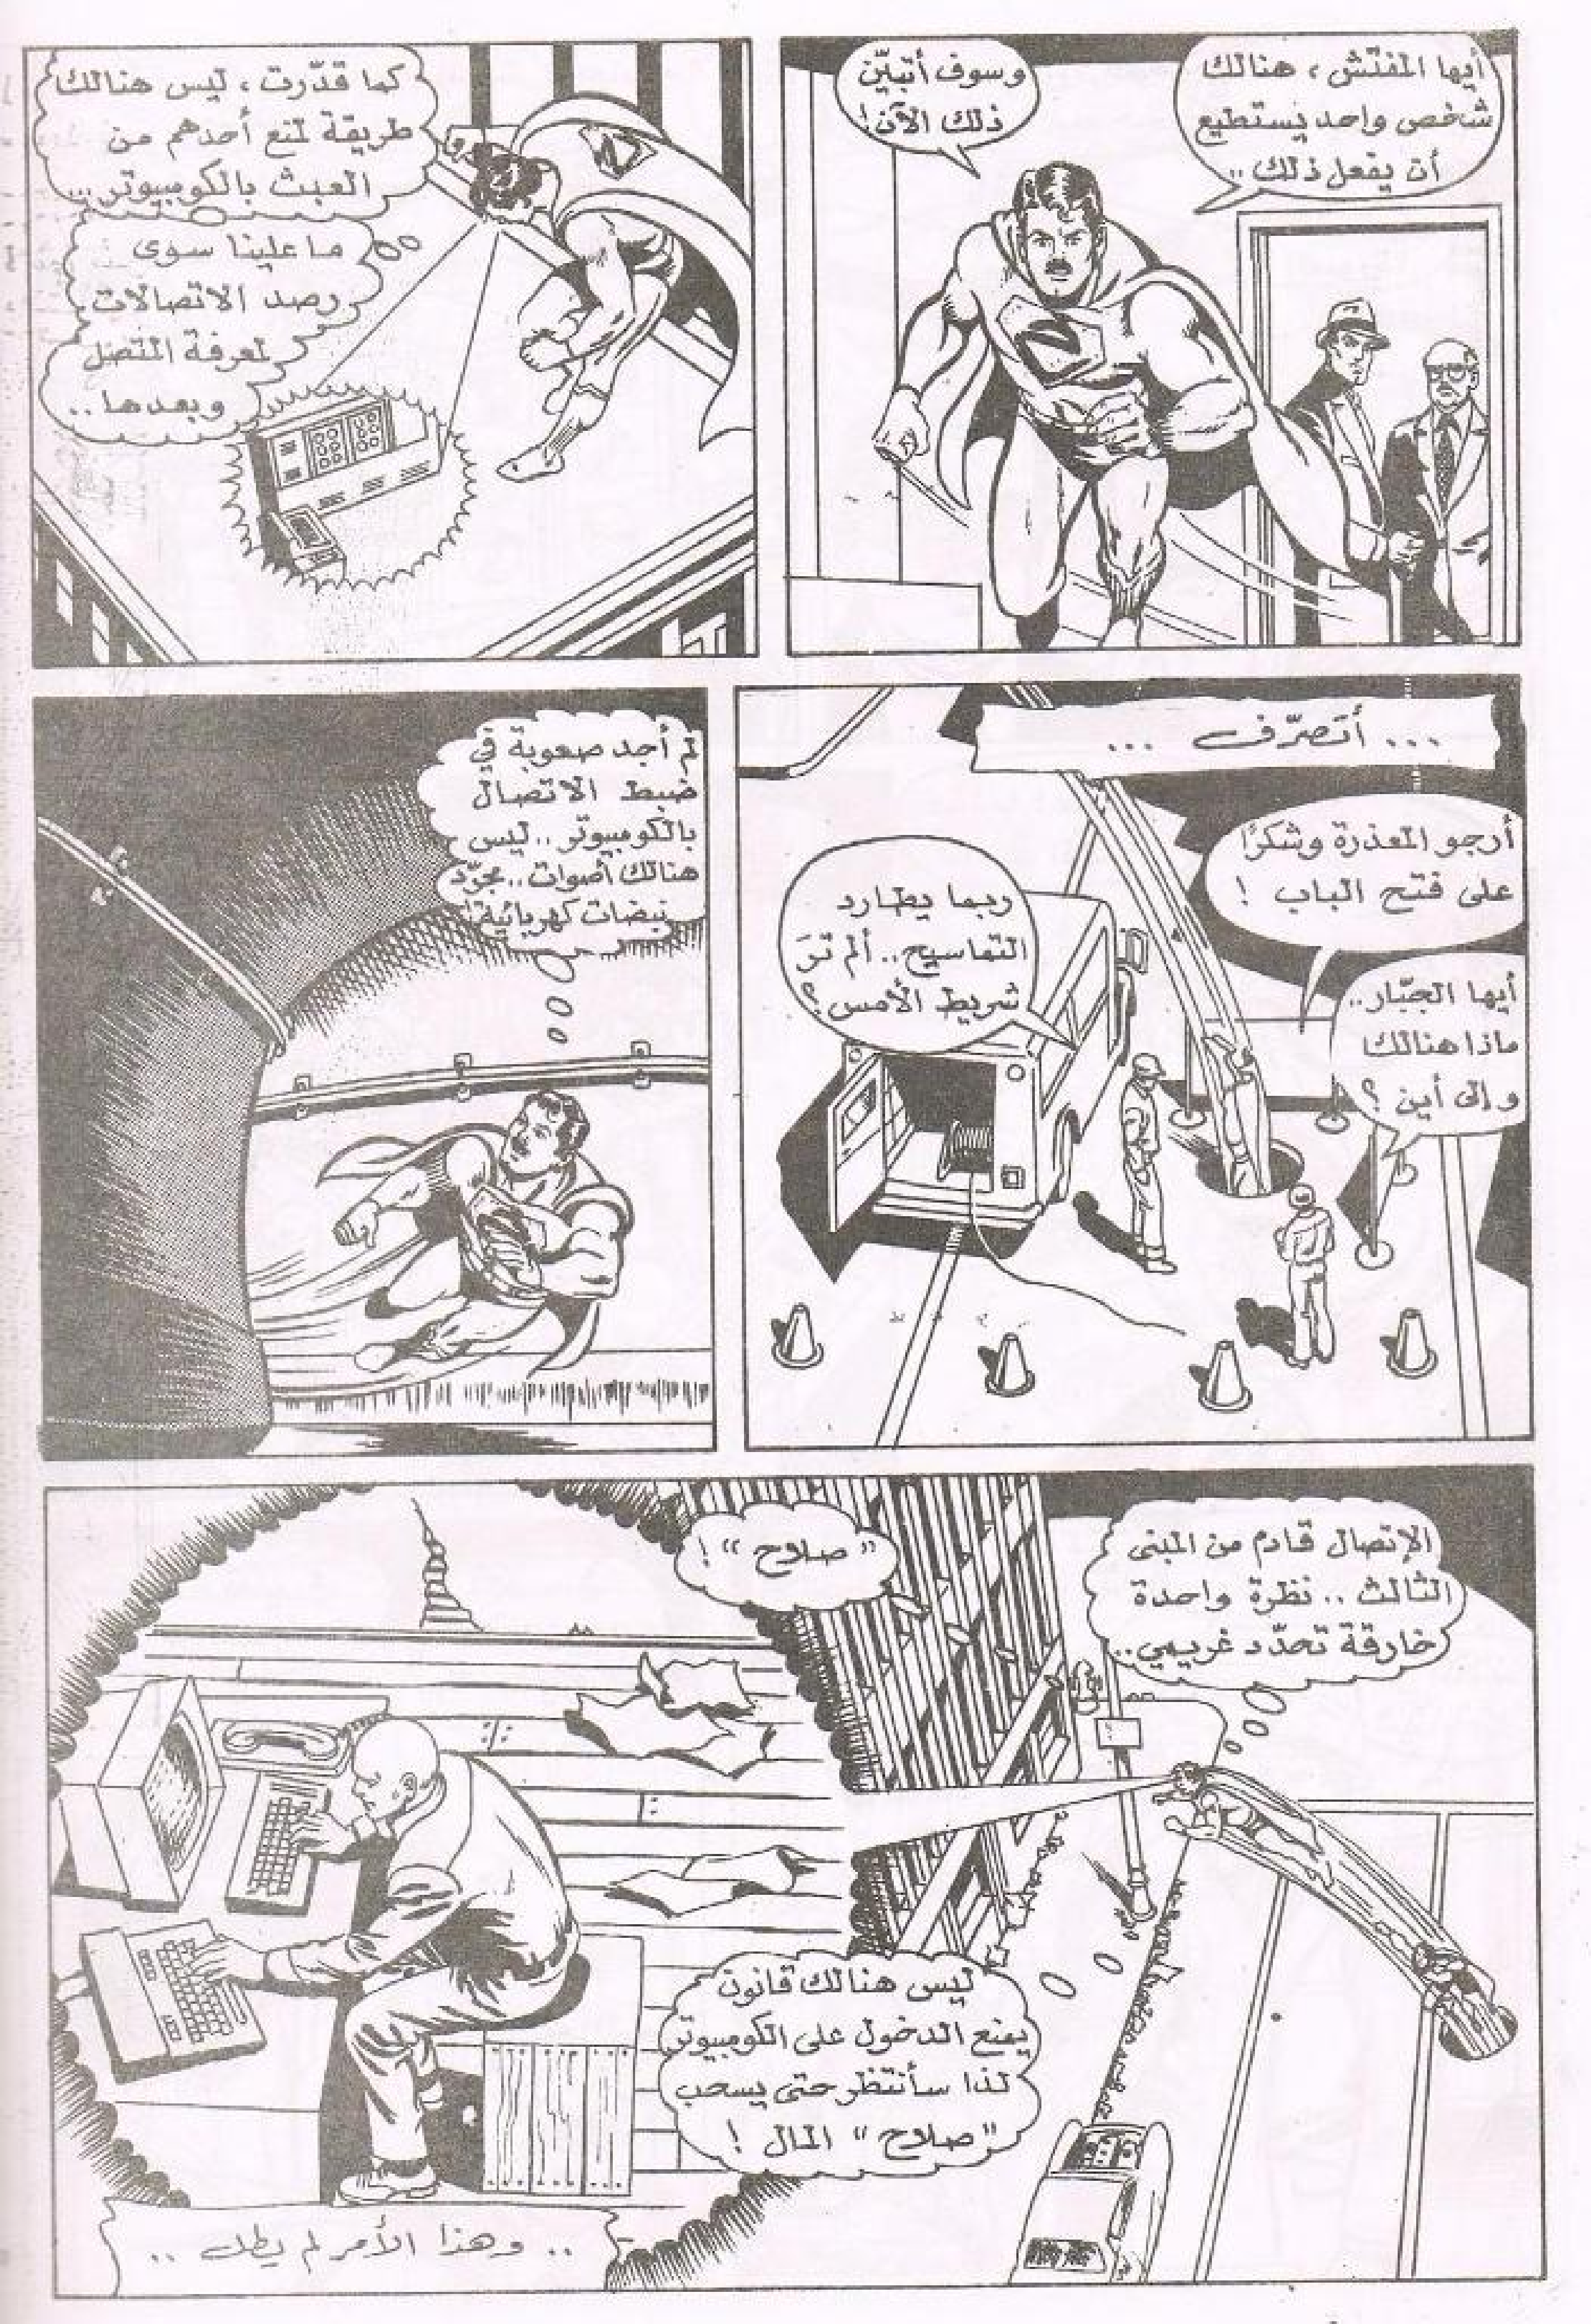 أيها المفتّش، هنالك
شخص واحد يستطيع
أن يفعل ذلك..
وسوف أتبيّن
ذلك الآن!
كما قدّرت، ليس هنالك
طريقة لمنع أحدهم من
العبث بالكومبيوتر...
ما علينا سوى
رصد الاتصالات
لمعرفة المتصل
وبعدها..
... أتصرّف ...
أرجو المعذرة وشكرًا
على فتح الباب !
أيها الجبّار..
ماذا هنالك
وإلى أين ؟
ربما يطارد
التماسيح.. ألم ترَ
شريط الأمس؟
لم أجد صعوبة في
ضبط الاتصال
بالكومبيوتر.. ليس
هنالك أصوات.. مجرّد
نبضات كهربائية!
الإتصال قادم من المبنى
الثالث .. نظرة واحدة
خارقة تحدّد غريمي..
"صلاح" !
ليس هنالك قانون
يمنع الدخول على الكومبيوتر
لذا سأنتظر حتى يسحب
"صلاح" المال !
.. وهذا الأمر لم يطل ..